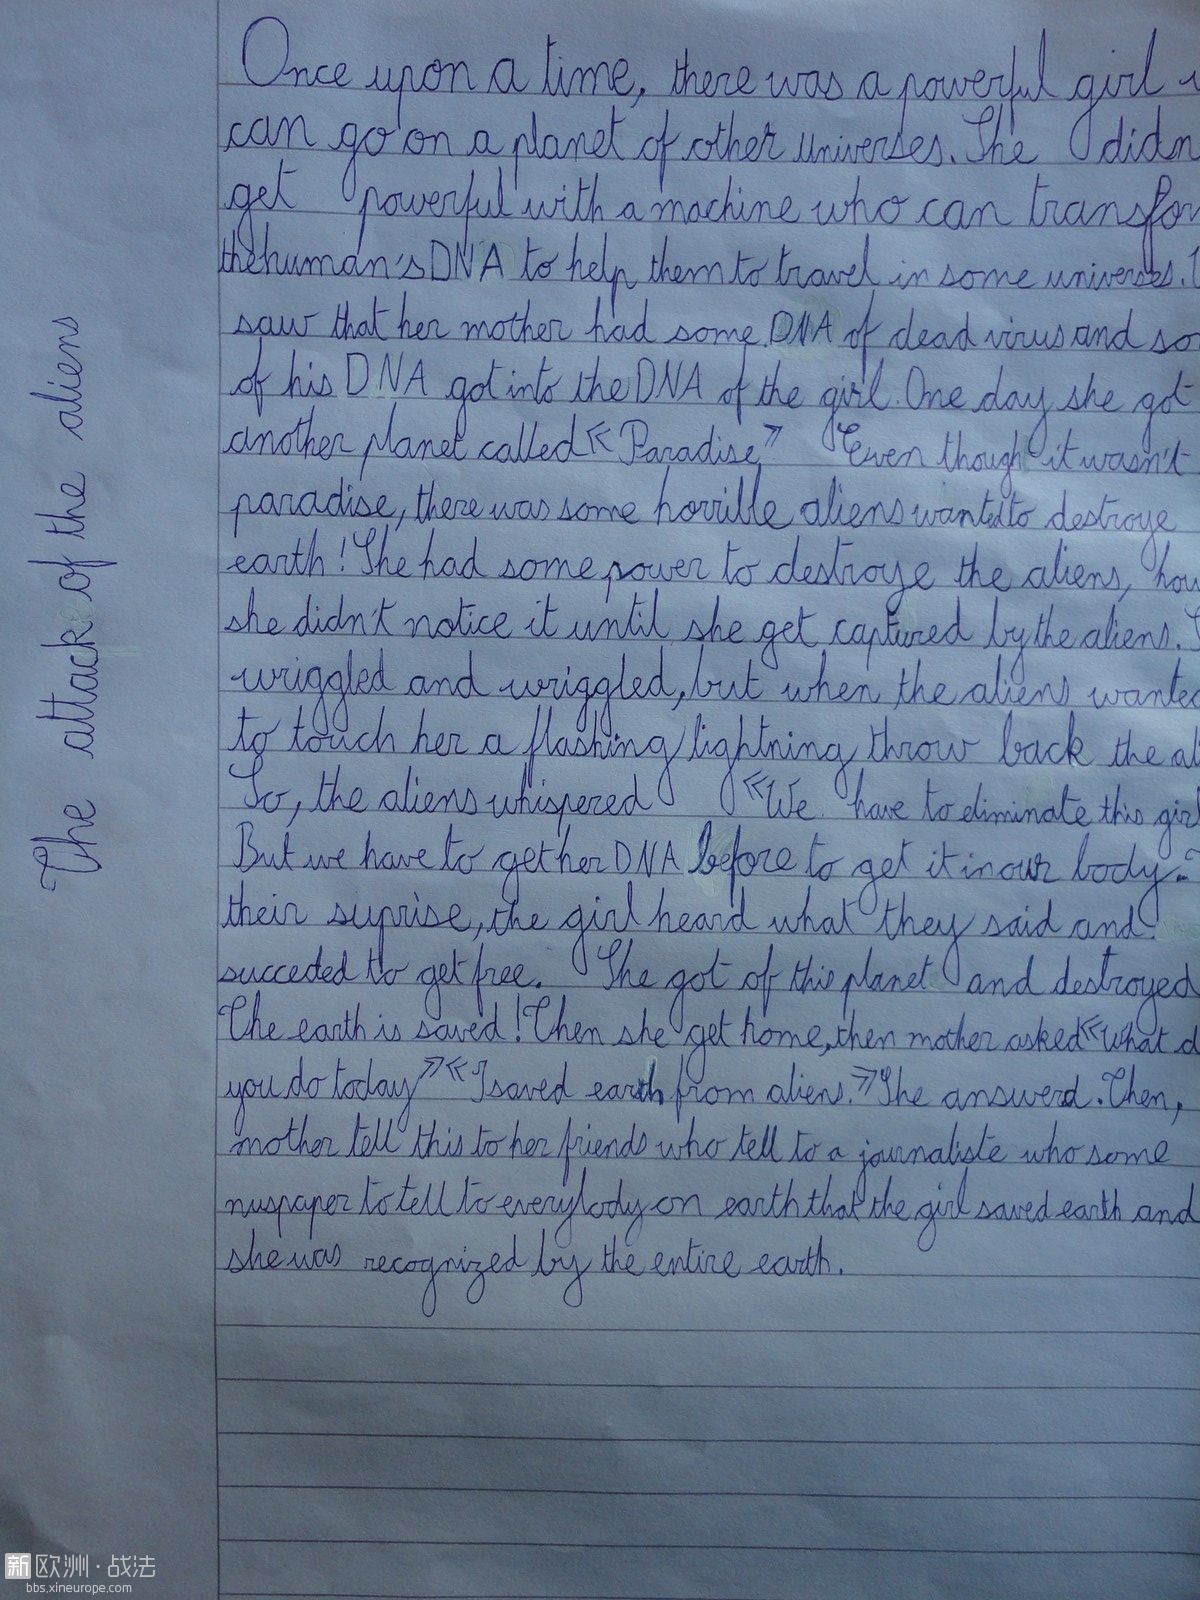 The attack of the aliens
Once upon a time, there was a powerful girl
can go on a planet of other universes. She didn
get powerful with a machine who can transfor
the human's DNA to help them to travel in some universes.
saw that her mother had some DNA of dead virus and so
of his DNA got into the DNA of the girl. One day she got
another planet called « Paradise » Even though it wasn't
paradise, there was some horrible aliens wanted to destroye
earth! She had some power to destroye the aliens, how
she didn't notice it until she get captured by the aliens. S
wriggled and wriggled, but when the aliens wanted
to touch her a flashing lightning throw back the ali
So, the aliens whispered « We have to eliminate this girl
But we have to get her DNA before to get it in our body.
their suprise, the girl heard what they said and
succeded to get free. She got of this planet and destroyed
The earth is saved! Then she get home, then mother asked « What d
you do today » « I saved earth from aliens. » She answerd. Then,
mother tell this to her friends who tell to a journaliste who some
nuspaper to tell to everybody on earth that the girl saved earth and
she was recognized by the entire earth.
新欧洲·战法
bbs.xineurope.com